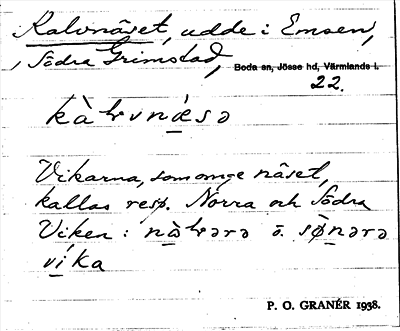 Kalvnäset, udde i Emsen,
i Södra Grimstad,
Boda sn, Jösse hd, Värmlands l.
22.
Vikarna, som omge näset,
kallas resp. Norra och Södra
Viken:
vika
P. O. GRANÉR 1938.